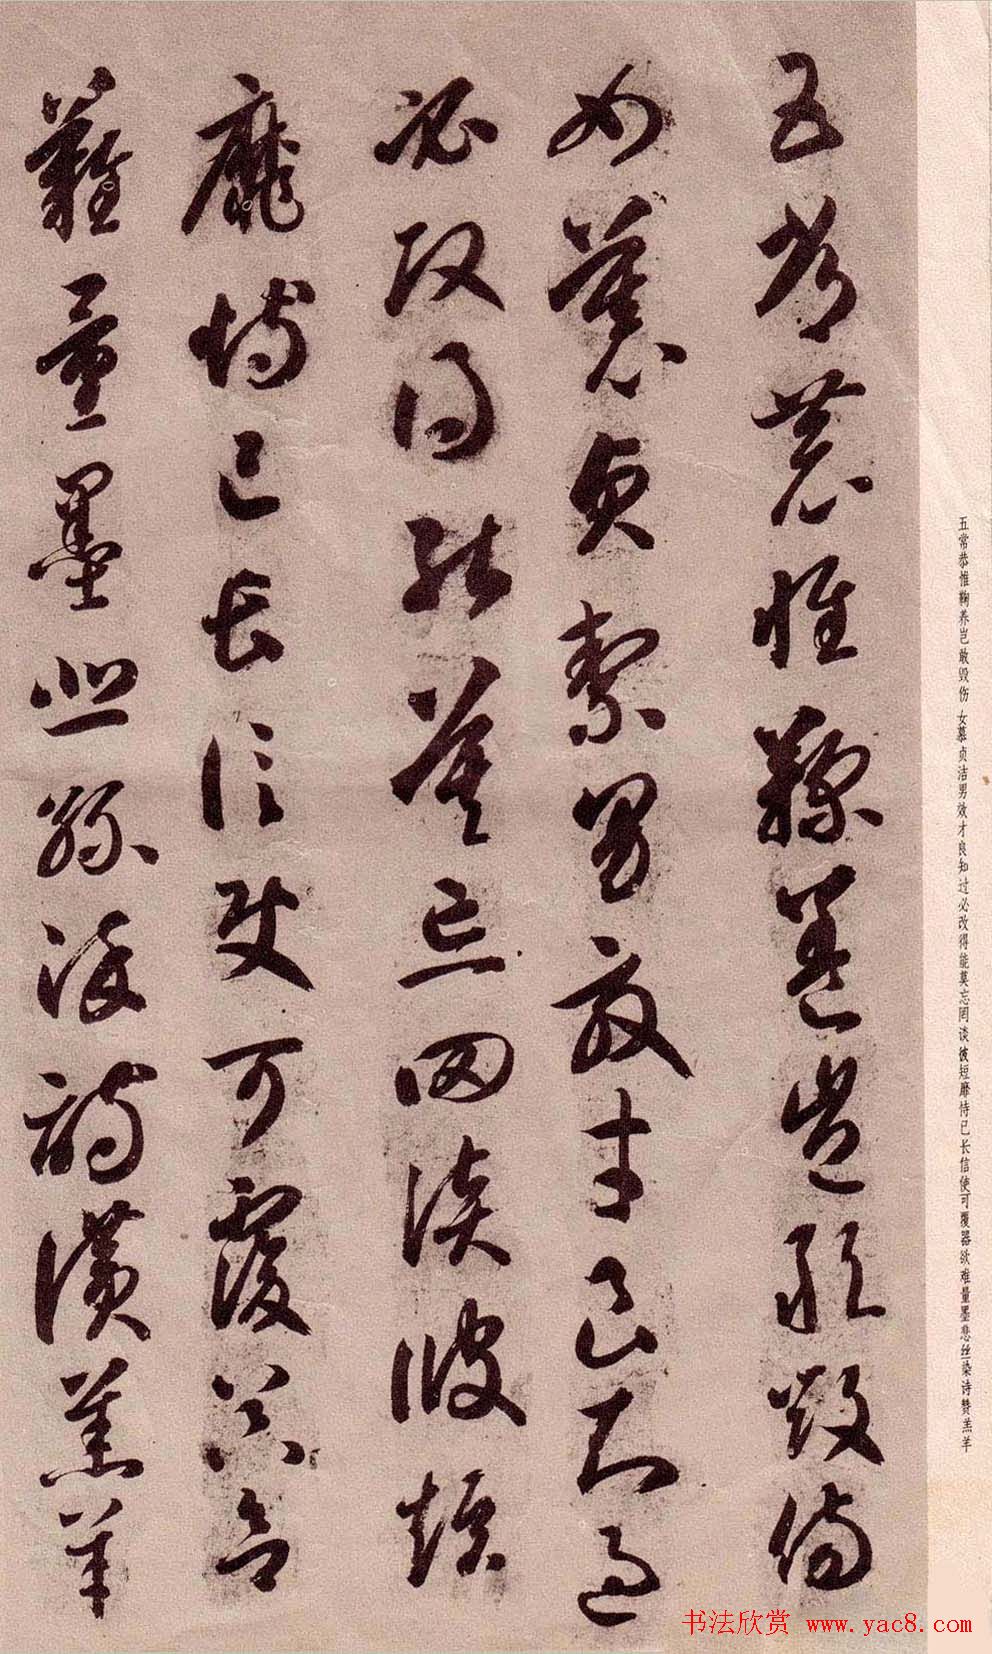 五常恭惟鞠养岂敢毁伤 女慕贞洁男效才良知过必改得能莫忘罔谈彼短靡恃已长信使可覆器欲难量墨悲丝染诗赞羔羊
五常恭惟鞠養豈敢毀傷
女慕貞絜男效才良知過
必改得能莫忘罔談彼短
靡恃己長信使可覆器欲
難量墨悲絲染詩讚羔羊
书法欣赏 www.yac8.com